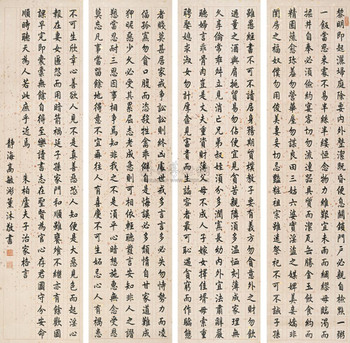 黎明即起灑掃庭除要內外整潔既昏便息關鎖門戶必親自檢點一粥
一飯當思來處不易半絲半縷恒念物力維艱宜未雨而綢繆毋臨渴而
掘井自奉必須儉約宴客切勿留連器具質而潔瓦缶勝金玉飲食約而
精園蔬愈珍饈勿營華屋勿謀良田三姑六婆實淫盜之媒婢美妾嬌非
閨房之福奴僕勿用俊美妻妾切忌豔粧祖宗雖遠祭祀不可不誠子孫
雖愚經書不可不讀居身務期質樸教子要有義方勿貪意外之財勿飲
過量之酒與肩挑貿易勿佔便宜見貧苦親鄰須多溫卹刻薄成家理無
久享倫常乖舛立見消亡兄弟叔姪須分多潤寡長幼內外宜法肅辭嚴
聽婦言乖骨肉豈是丈夫重資財薄父母不成人子嫁女擇佳壻毋索重
聘娶媳求淑女勿計厚奩見富貴而生諂容者最可恥遇貧窮而作驕態
者賤莫甚居家戒爭訟訟則終凶處世戒多言言多必失毋恃勢力而凌
逼孤寡勿貪口腹而恣殺牲禽乖僻自是悔誤必多頹惰自甘家道難成
狎昵惡少久必受其累屈志老成急則可相依輕聽發言安知非人之譖
愬當忍耐三思因事相爭焉知非我之不是須平心暗想施惠無念受恩
莫忘凡事當留餘地得意不宜再往人有喜慶不可生妒忌心人有禍患
不可生欣幸心善欲人見不是真善惡恐人知便是大惡見色而起淫心
報在妻女匿怨而用暗箭禍延子孫家門和順雖饔飧不繼亦有餘歡國
課早完即囊橐無餘自得至樂讀書志在聖賢為官心存君國守分安命
順時聽天為人若此庶乎近焉 朱柏廬夫子治家格言
靜海高毓浵薰沐敬書